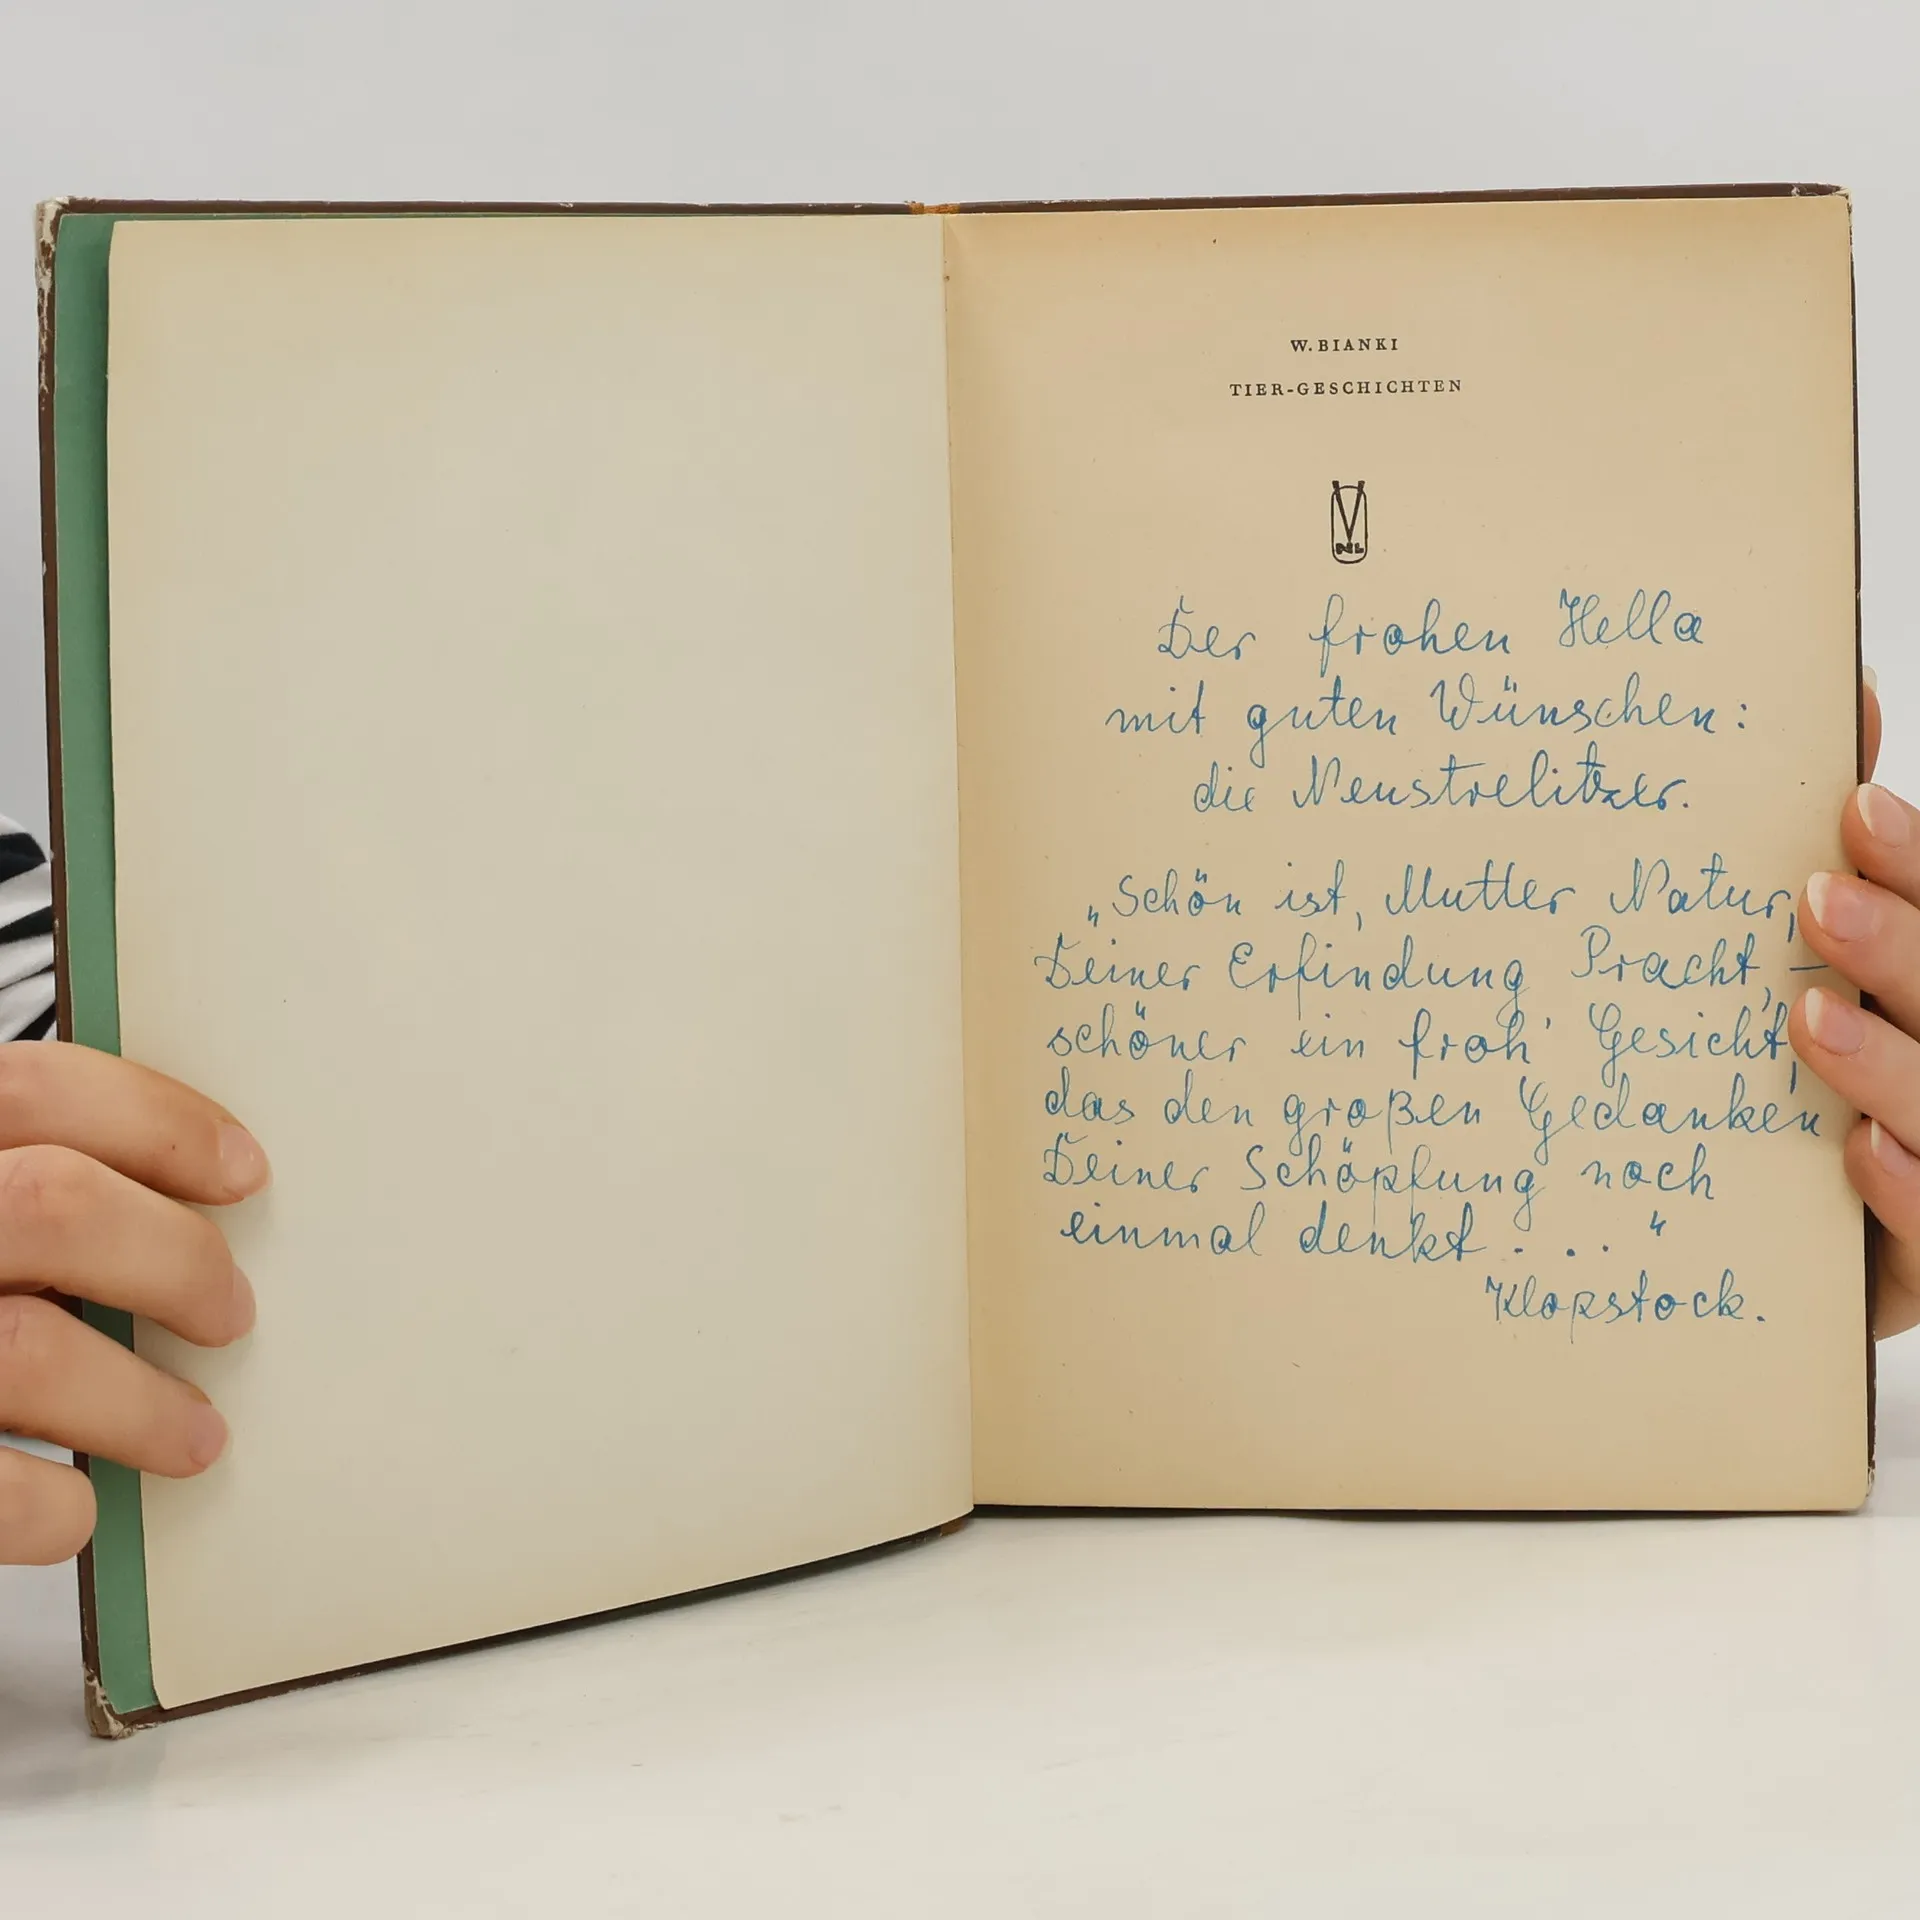 W. BIANKI
TIER-GESCHICHTEN
NL
Der frohen Hella
mit guten Wünschen:
die Neustrelitzer.
„Schön ist, Mutter Natur,
Deiner Erfindung Pracht, –
schöner ein froh' Gesicht,
das den großen Gedanken
Deiner Schöpfung noch
einmal denkt . . . “
Klopstock.